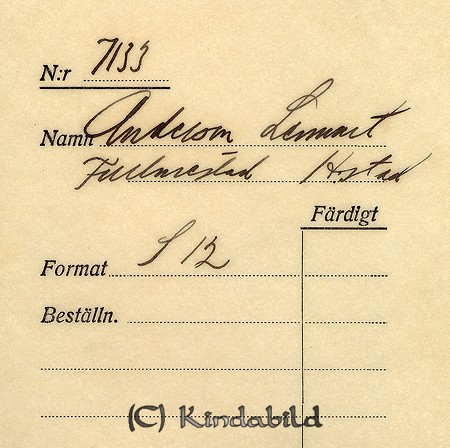 N:r 7133
Namn Anderson Lennart
H.stad
Färdigt
Format S 12
Beställn.
(C) Kindabild